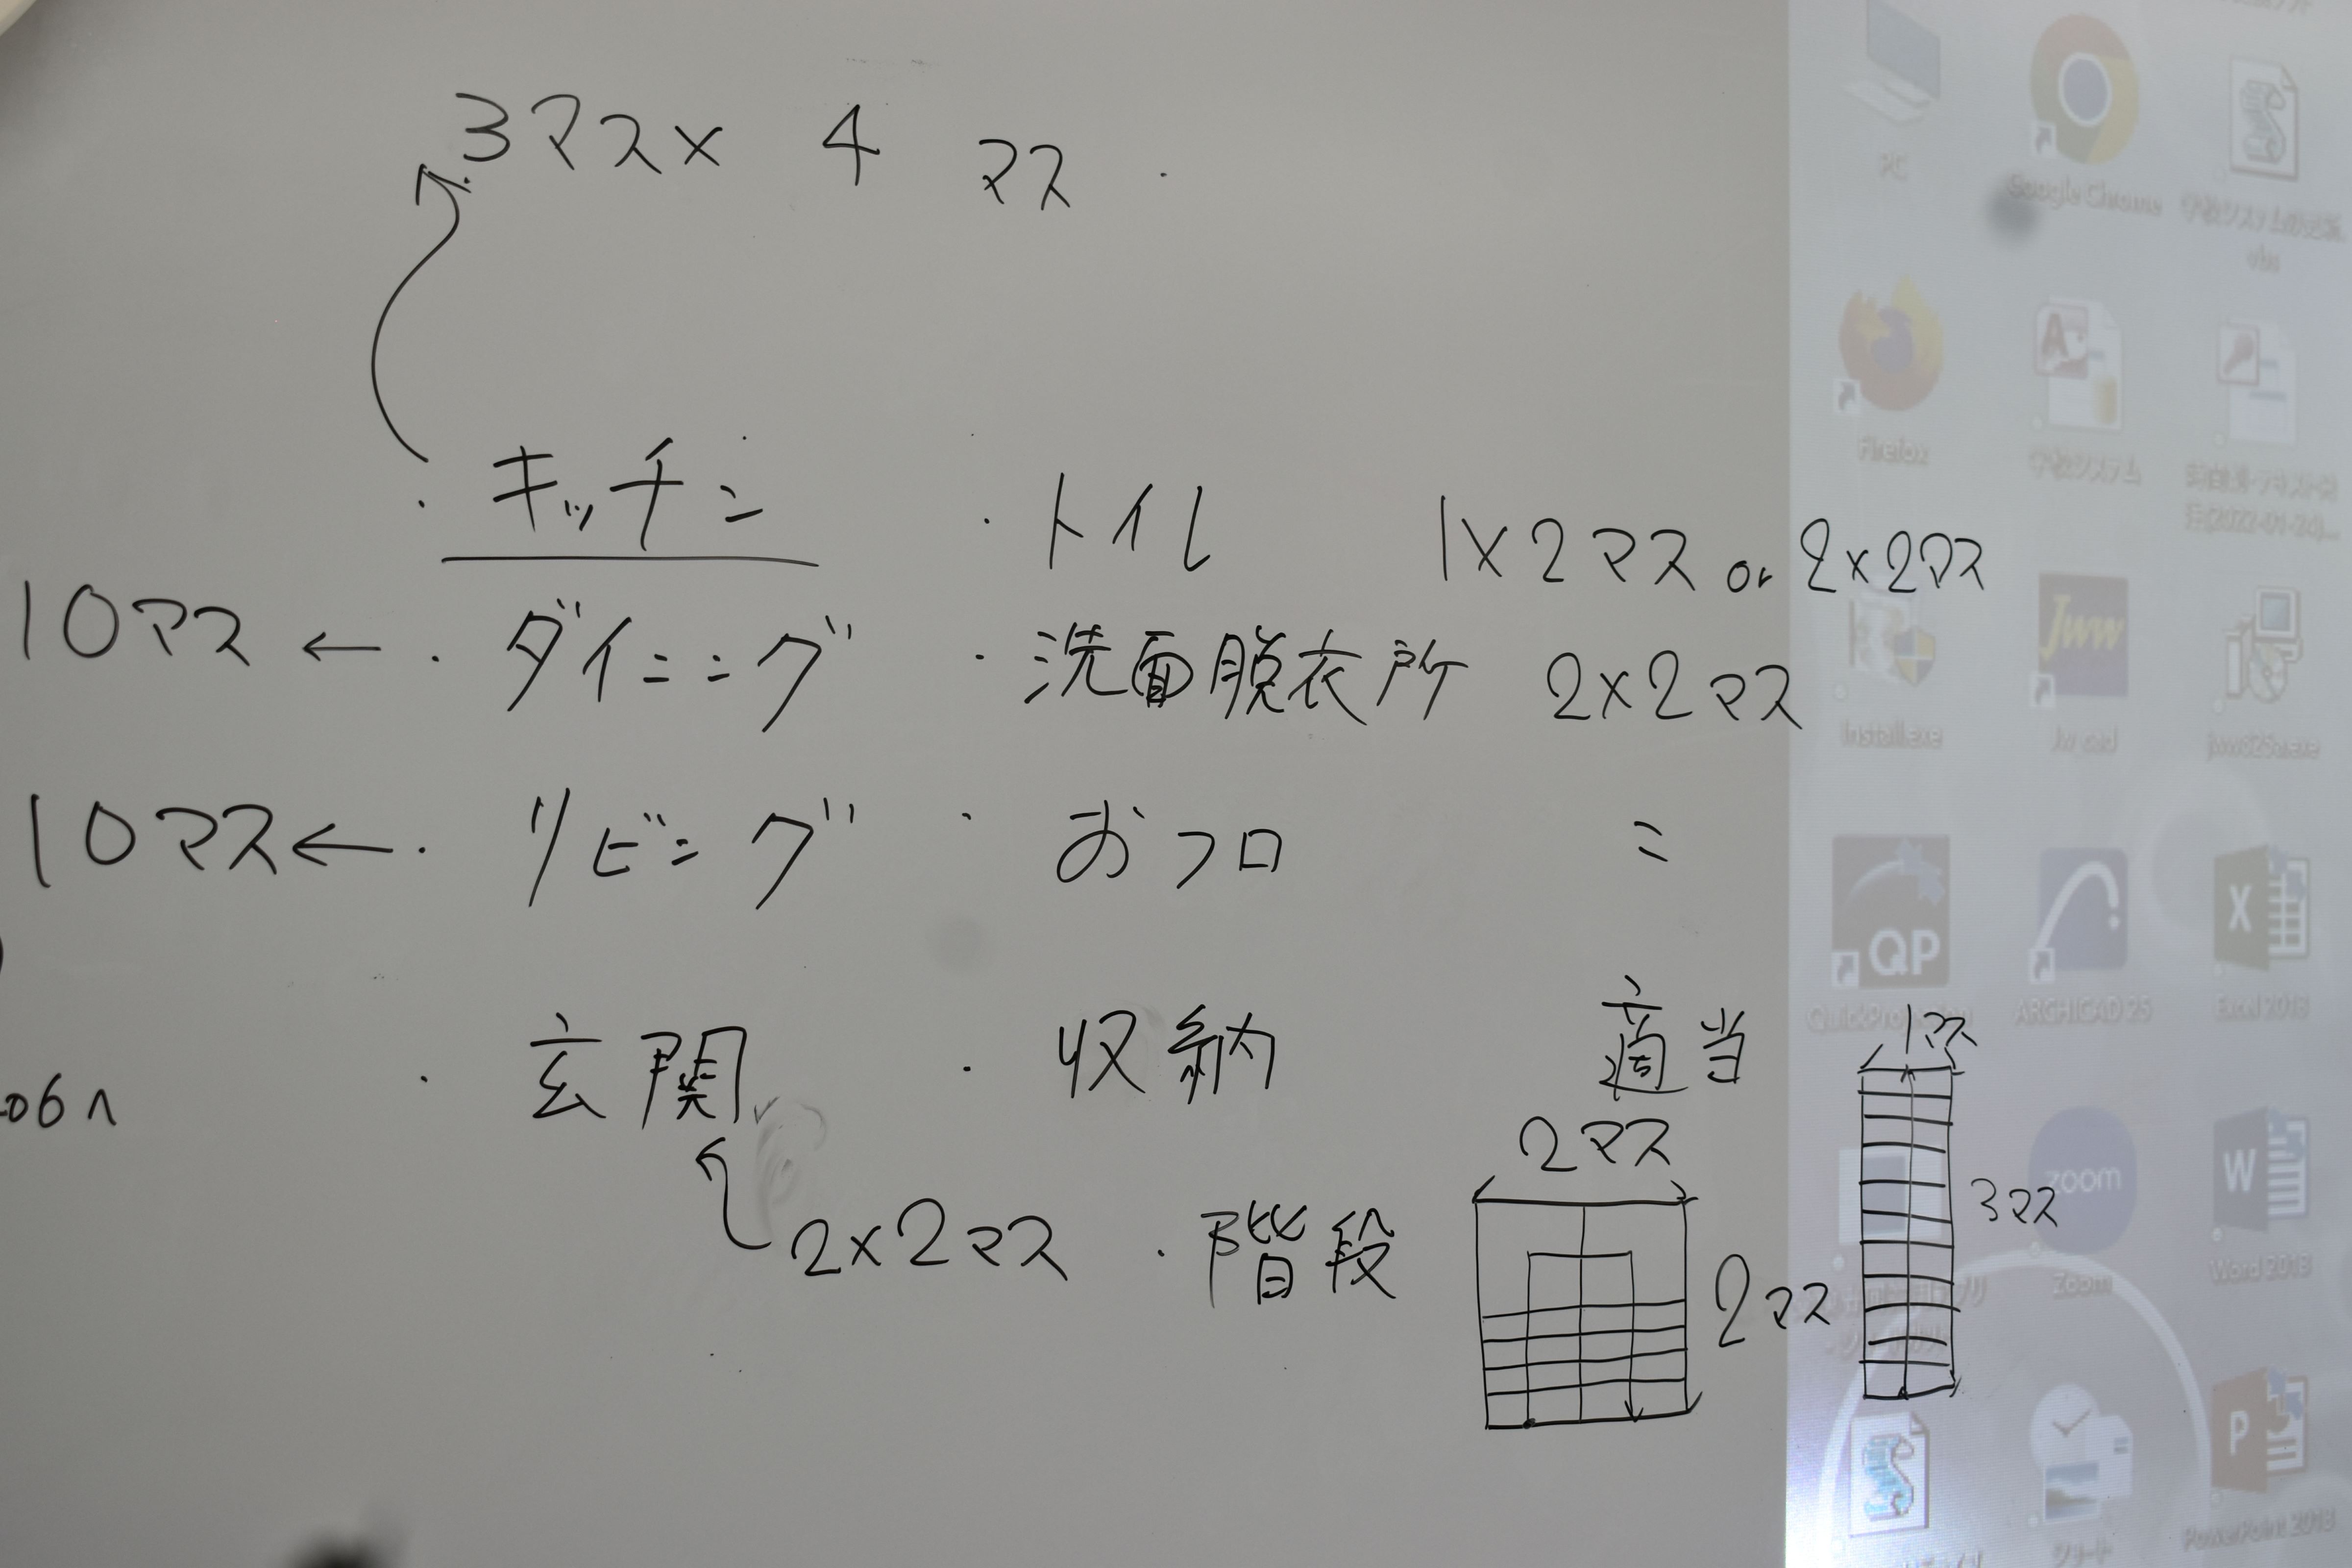 3マス× 4 マス
・キッチン
・トイレ 1×2マス or 2×2マス
10マス ← ・ダイニング
・洗面脱衣所 2×2マス
10マス ← ・リビング
・おフロ 〃
・玄関
2×2マス
・収納 適当
・階段
2マス
2マス
1マス
3マス
PC
Google Chrome
Firefox
学校システム
Install.exe
Jww
Jw_cad
QP
ARCHICAD 25
X
Excel 2013
zoom
Zoom
W
Word 2013
P
PowerPoint 2013